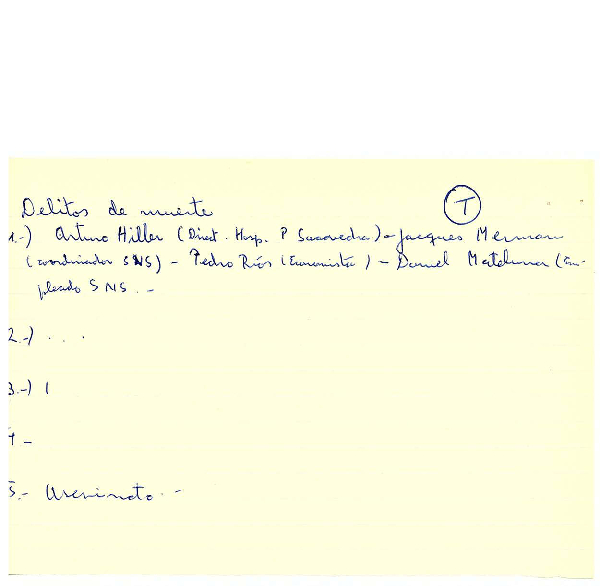 Delitos de muerte T
1.-) Arturo Hiller (Direct. Hosp. P Saavedra) - Jacques Merman
(coordinador SNS) - Pedro Ríos (Economista) - Daniel Mateluna (Em-
pleado SNS. -
2.-) . . .
3.-) 1
4 -
5.- Asesinato. -